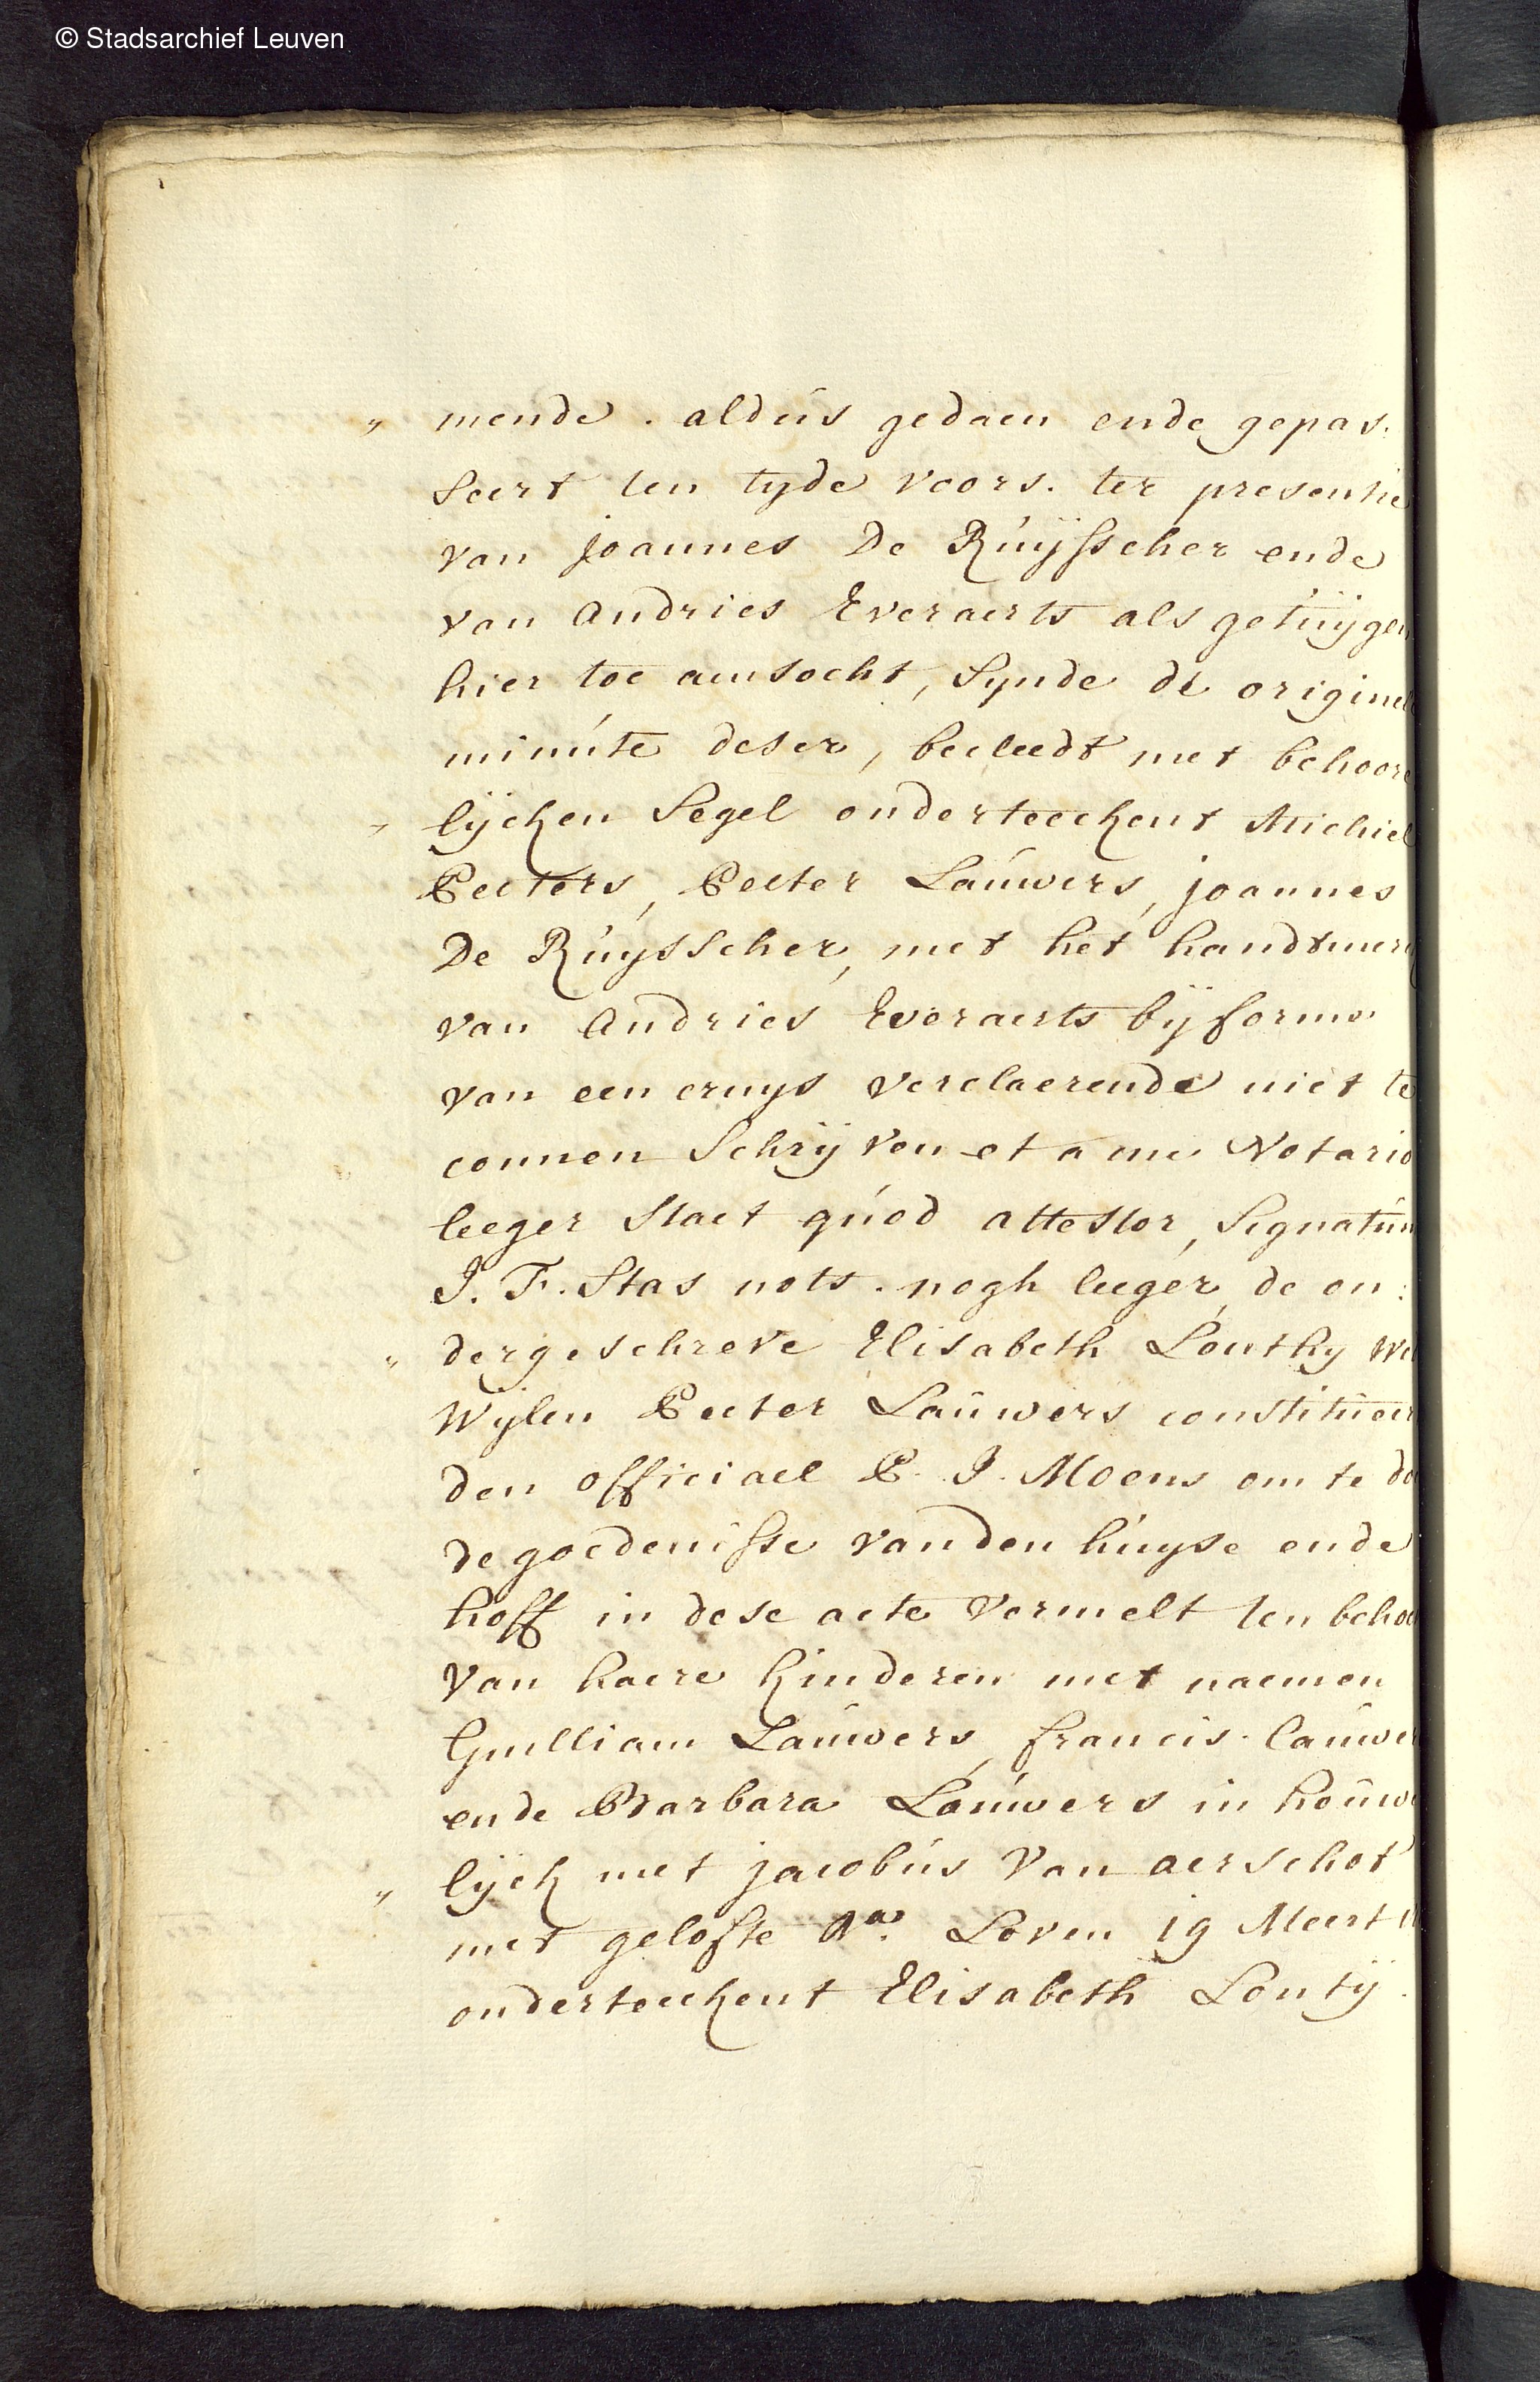 © Stadsarchief Leuven
" mende. aldús gedaen ende gepas:
seert ten tyde voors. ter presentie
van joannes De Rúijsscher ende
van Andries Everaerts als getúijgen
hier toe aensocht, Synde de origine
minúte deser, becleedt met behoore
" lijcken Segel onderteeckent Michiel
Peeters, Peeter Laúwers, joannes
De Rúysscher, met het handtmer
van Andries Everaerts bij forme
van een cruys verclaerende niet te
connen Schrijven et a me Notario
leeger Staet qúod attestor, Signatúm
J. F. Stas nots. nogh leeger, de on:
" dergeschreve Elisabeth Lonthy We
Wylen Peeter Laúwers constitúeer
den officiael P. J. Moens om te do
de goedenisse van den húyse ende
hoff in dese acte vermelt ten behoe
van haere kinderen met naemen
Guilliam Laúwers, francis laúwe
ende Barbara Laúwers in hoúwe
" lijck met jacobús Van aerschot
met gelofte Loven 19 Meert
onderteeckent Elisabeth Lontij.